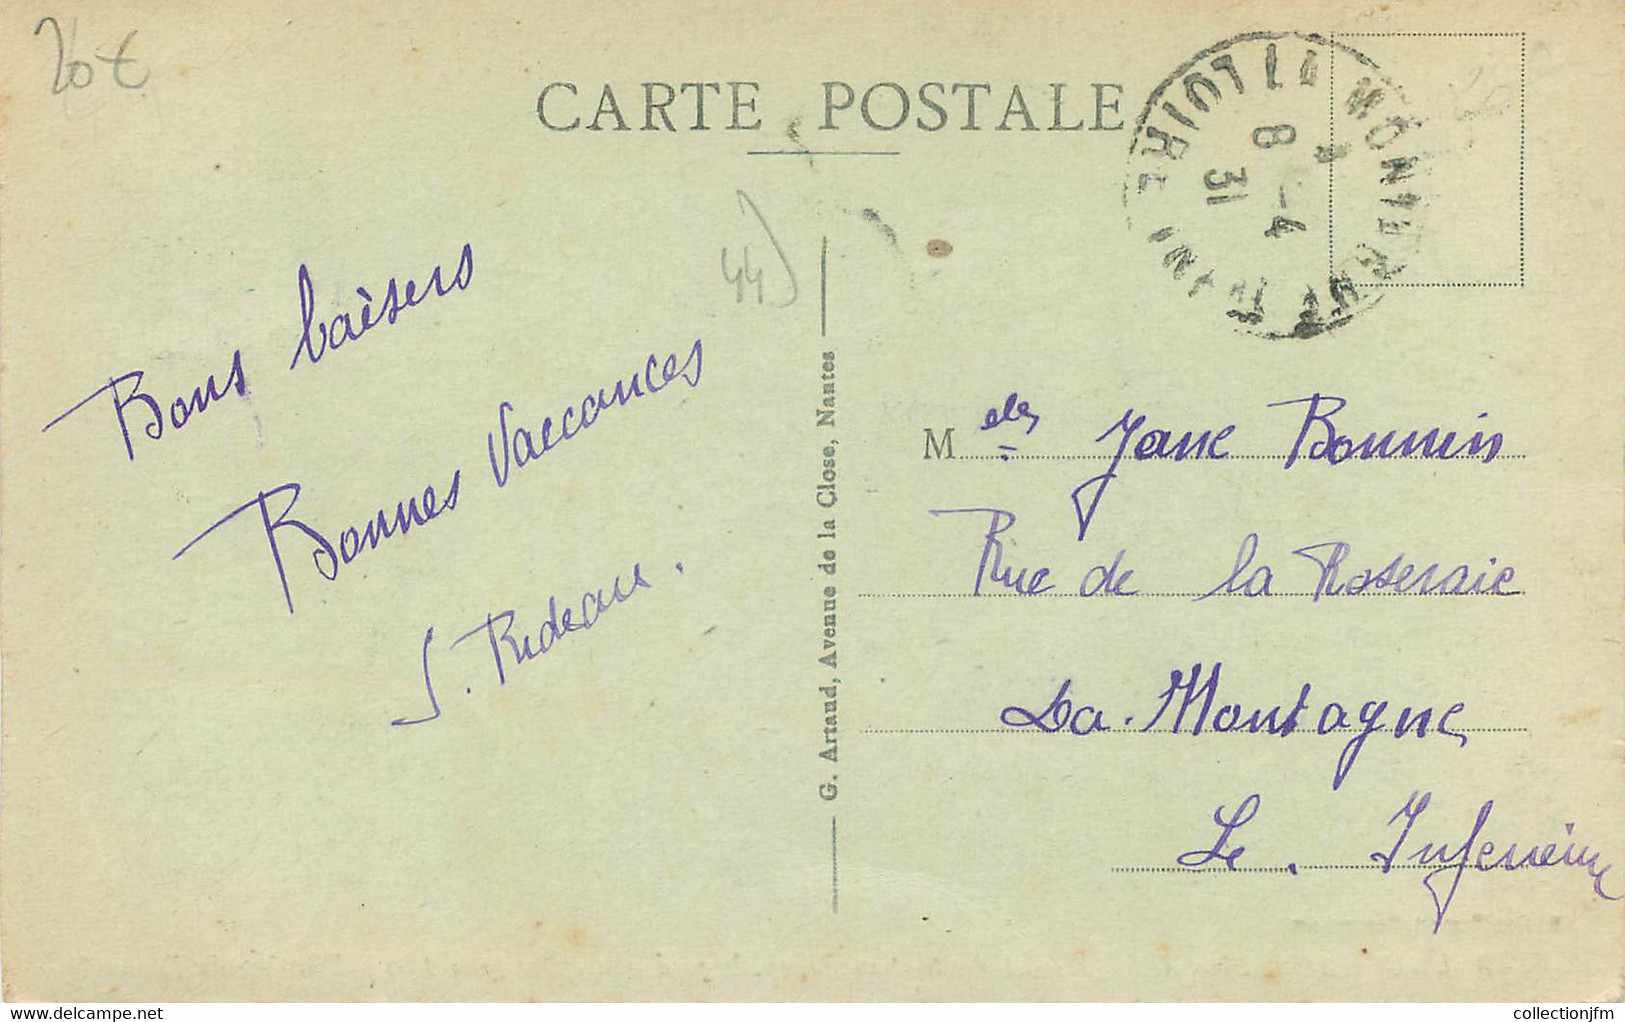 20€
CARTE POSTALE
8 -4
31
44)
Bons baisers
Bonnes Vaccances
S. Rideau.
G. Artaud, Avenue de la Close, Nantes
M elles Jane Bonnin
Rue de la Roseraie
La Montagne
Le. Inferieure
delcampe.net
collectionjfm